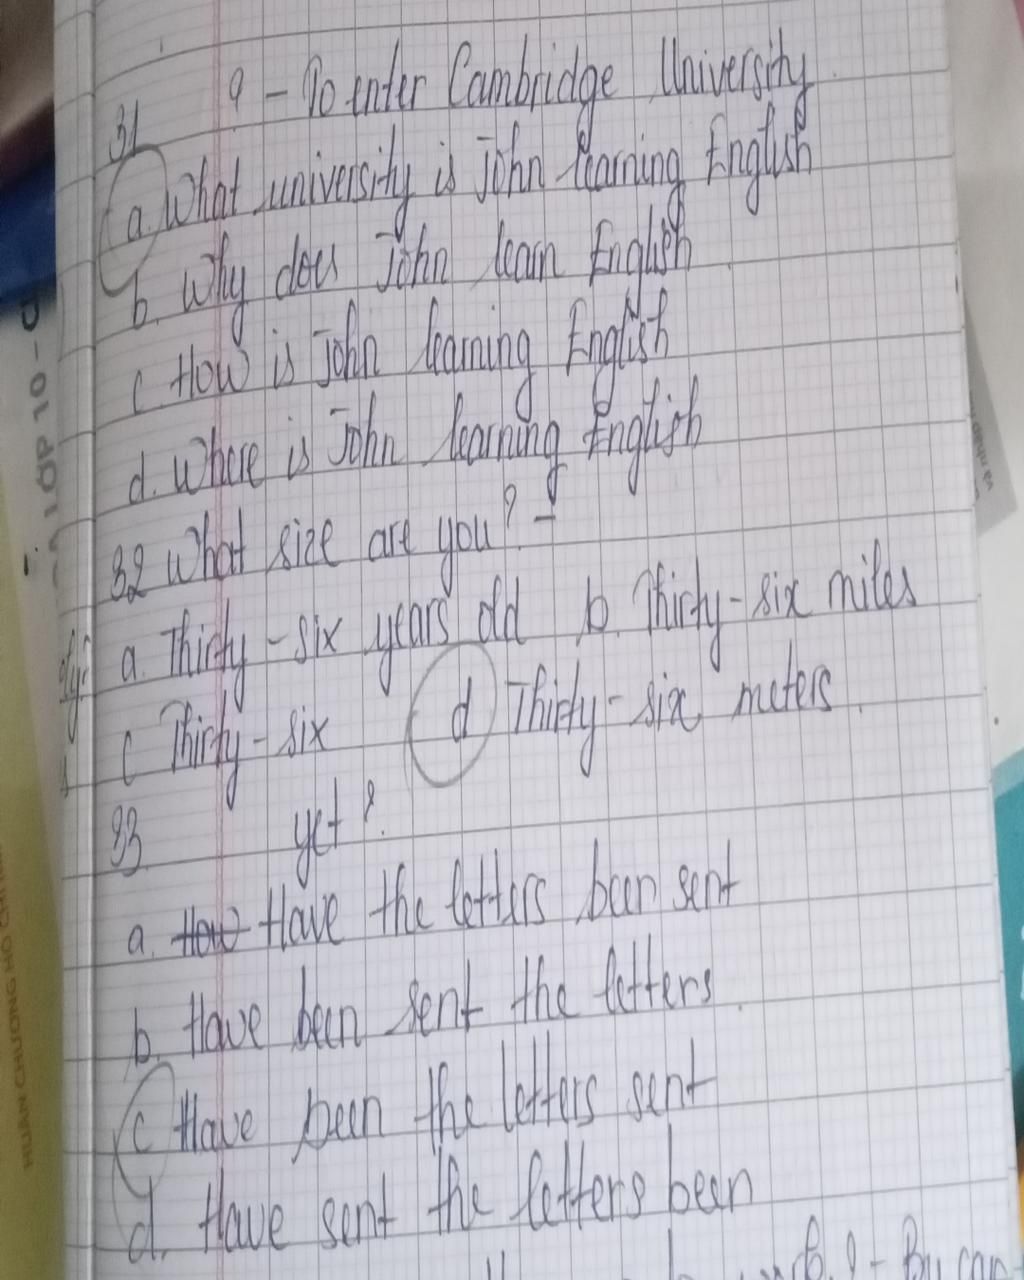 31 ? - To enter Cambridge University.
a. What university is John learning English
b. Why does John learn English.
c How is John learning English
d. Where is John learning English
32 What size are you? -
a. Thirty-six years old b. Thirty-six miles
c Thirty-six d Thirty-six meters.
33 yet?.
a. How Have the letters been sent
b. Have been sent the letters.
c Have been the letters sent
d. Have sent the letters been
? - By
LỚP 10 -